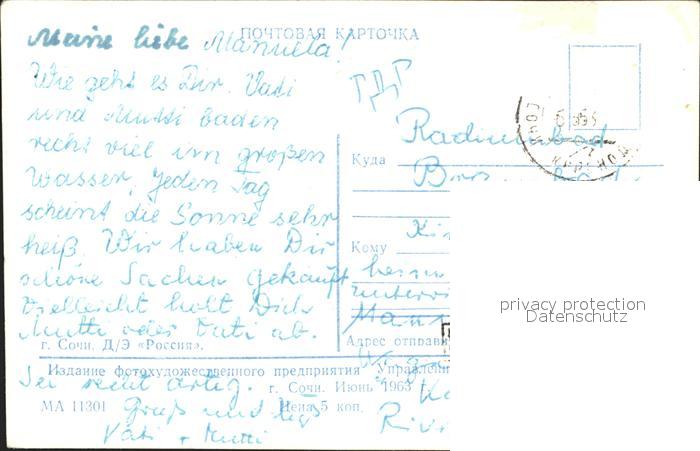 ПОЧТОВАЯ КАРТОЧКА
Meine liebe Manuela!
Wie geht es Dir. Vati
und Mutti baden
recht viel im großen
Wasser, Jeden Tag
scheint die Sonne sehr
heiß. Wir haben Dir
schöne Sachen gekauft
Vielleicht holt Dich
Mutti oder Vati ab.
Sei recht artig.
Gruß und
Vati + Mutti
ГДР
Radiumbad
Куда
Кому
Адрес отправи
г. Сочи. Д/Э «Россия».
Издание фотохудожественного предприятия Управлени
г. Сочи. Июнь 1963 г.
МА 11301 Цена 5 коп.
privacy protection
Datenschutz